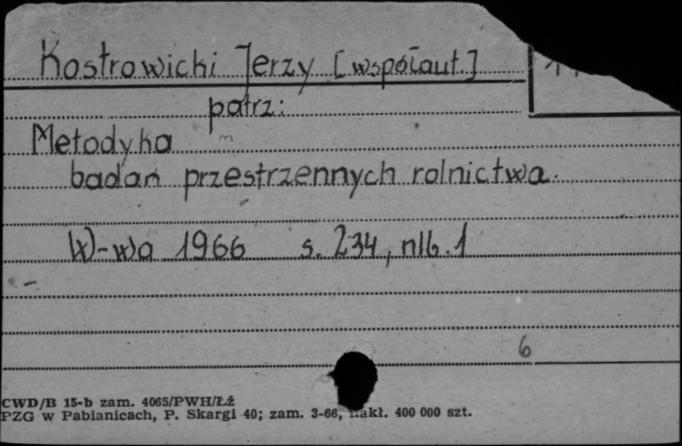 Kostrowicki Jerzy [współaut.]
patrz:
Metodyka
badań przestrzennych rolnictwa.
W-wa 1966 s. 234, nlb. 1
6
CWD/B 15-b zam. 4065/PWH/Łź
PZG w Pabianicach, P. Skargi 40; zam. 3-66, nakł. 400 000 szt.